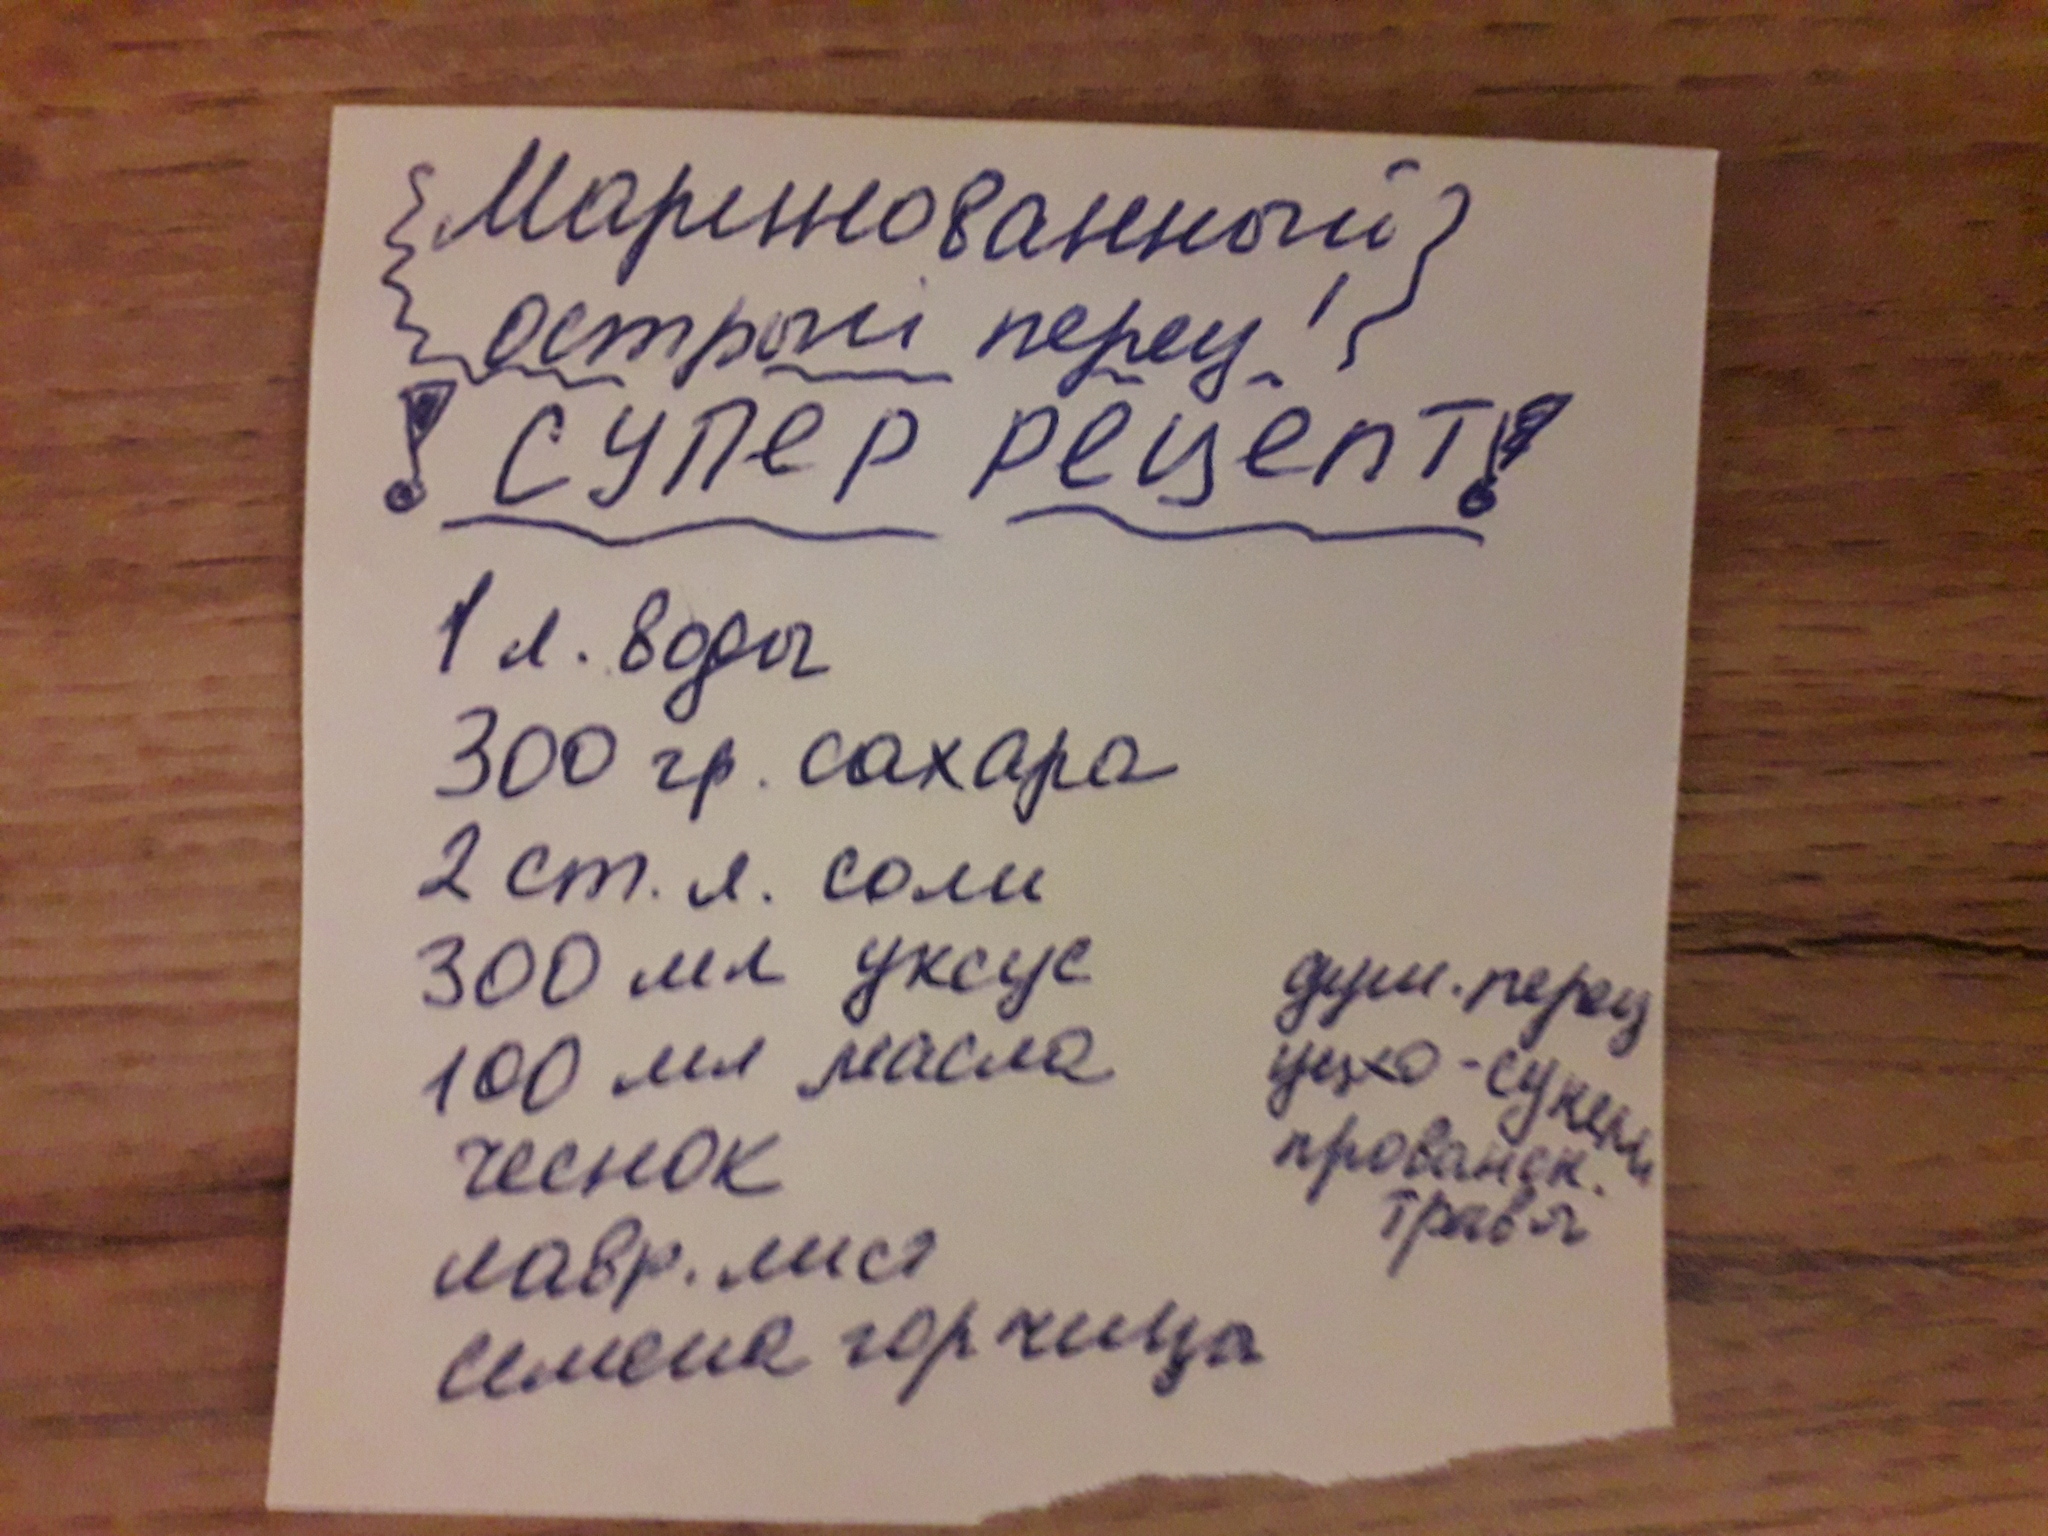 Маринованный
острый перец!
! супер рецепт!
1 л. воды
300 гр. сахара
2 ст. л. соли
300 мл уксус
100 мл масла
чеснок
лавр. лист
семена горчицы
душ. перец
уцхо-сунели
прованск.
травы